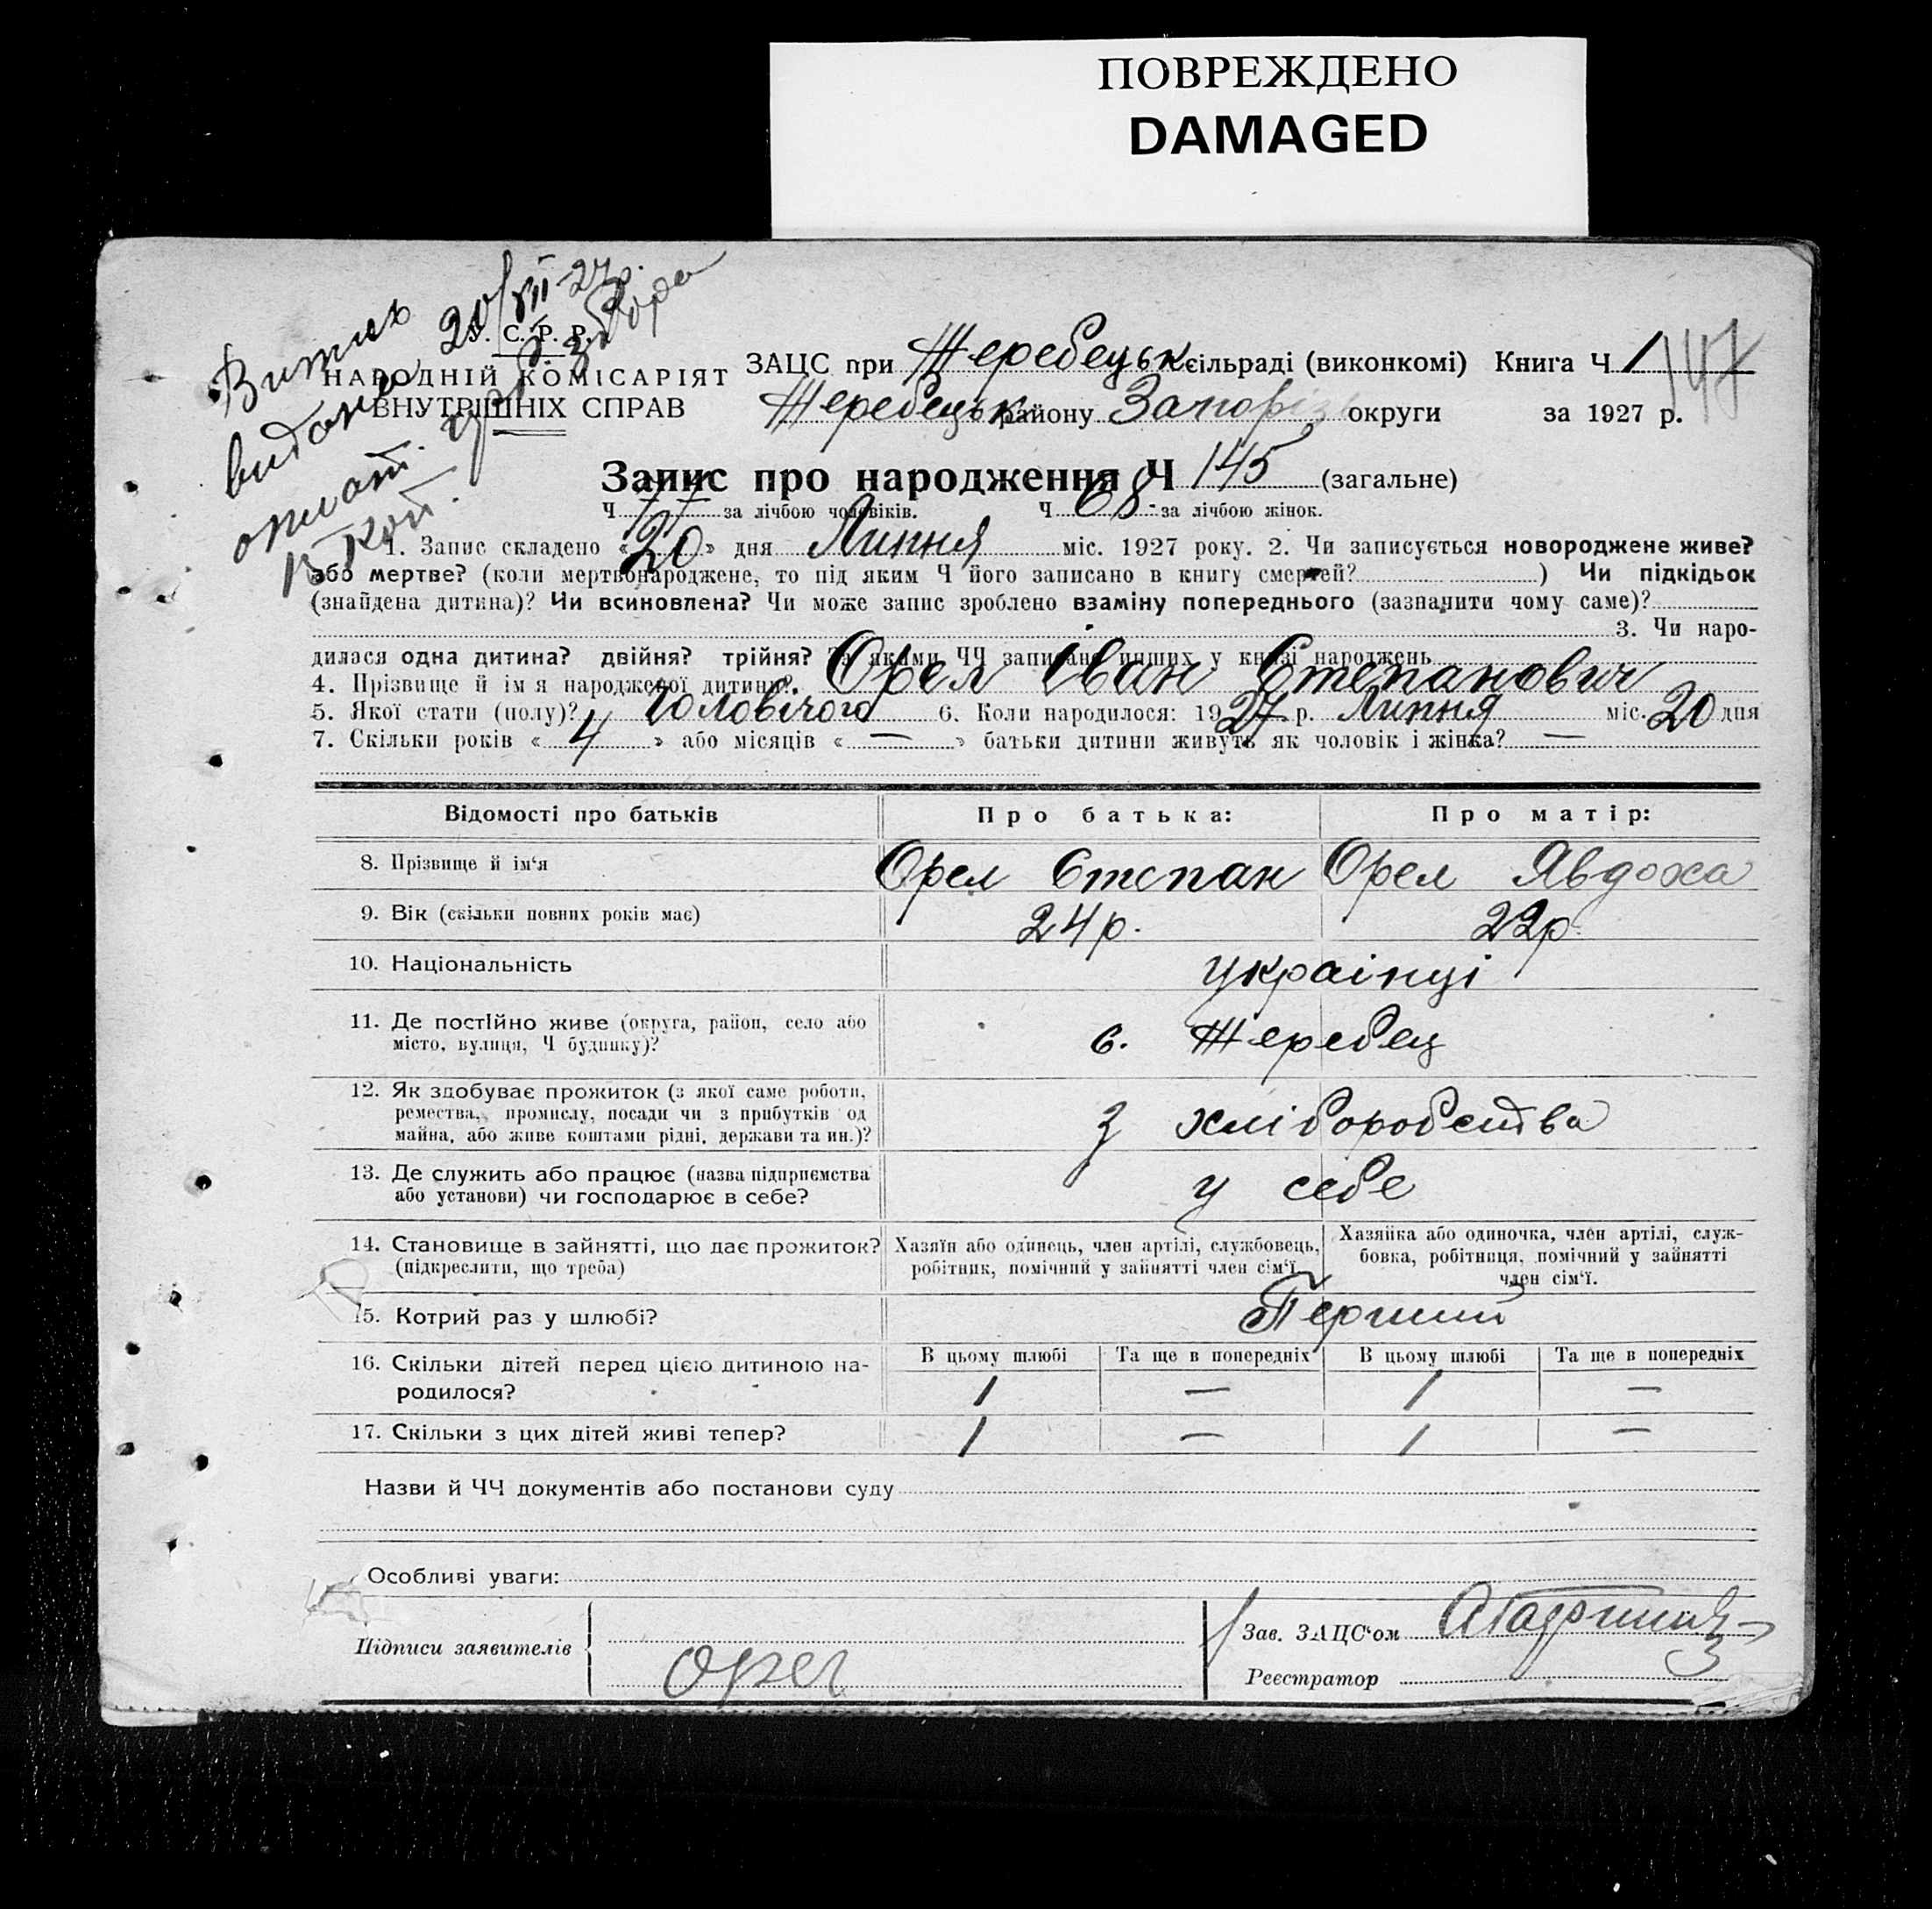 ПОВРЕЖДЕНО
DAMAGED
Витяг
видано 20/VII-27р.
оплат.
15 коп.
С. Р. Р.
НАРОДНІЙ КОМІСАРІЯТ
ВНУТРІШНІХ СПРАВ
ЗАЦС при Жеребецьк сільраді (виконкомі) Книга Ч 1
147
Жеребецьк району Запоріз округи за 1927 р.
Запис про народження Ч 145 (загальне)
Ч 77 за лічбою чоловіків. Ч 68 за лічбою жінок.
1. Запис складено «20» дня Липня міс. 1927 року. 2. Чи записується новороджене живе?
або мертве? (коли мертвонароджене, то під яким Ч його записано в книгу смертей? ) Чи підкідьок
(знайдена дитина)? Чи всиновлена? Чи може запис зроблено взаміну попереднього (зазначити чому саме)?
3. Чи наро-
дилася одна дитина? двійня? трійня? Та якими ЧЧ записано инших у книзі народжень
4. Прізвище й ім я народженої дитини? Орел Іван Степанович
5. Якої стати (полу)? Чоловічого 6. Коли народилося: 1927 р. Липня міс. 20 дня
7. Скільки років « 4 » або місяців « — » батьки дитини живуть як чоловік і жінка? —
Відомості про батьків Про батька: Про матір:
8. Прізвище й ім‘я Орел Степан Орел Явдоха
9. Вік (скільки повних років має) 24р. 22р.
10. Національність українці
11. Де постійно живе (округа, район, село або
місто, вулиця, Ч будинку)? с. Жеребец
12. Як здобуває прожиток (з якої саме роботи,
ремества, промислу, посади чи з прибутків од
майна, або живе коштами рідні, держави та ин.)? З хліборобства
13. Де служить або працює (назва підприємства
або установи) чи господарює в себе? у себе
14. Становище в зайнятті, що дає прожиток?
(підкреслити, що треба)
Хазяїн або одинець, член артілі, службовець,
робітник, помічний у зайнятті член сім‘ї.
Хазяйка або одиночка, член артілі, служ-
бовка, робітниця, помічний у зайнятті
член сім‘ї.
15. Котрий раз у шлюбі? Перший
В цьому шлюбі Та ще в попередніх В цьому шлюбі Та ще в попередніх
16. Скільки дітей перед цією дитиною на-
родилося? 1 — 1 —
17. Скільки з цих дітей живі тепер? 1 — 1 —
Назви й ЧЧ документів або постанови суду
Особливі уваги:
Підписи заявителів Орел
Зав. ЗАЦС‘ом
Реєстратор